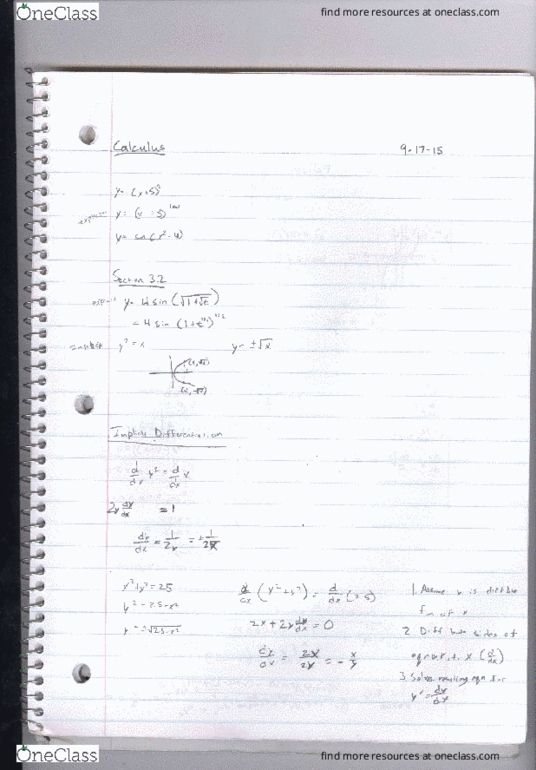 OneClass find more resources at oneclass.com
Calculus 9-17-15
y= (x+5)²
y= sin(x²-4)
Section 3.2
y= 4 sin (√1+√t)
= 4 sin (1+t^1/2)^1/2
y² = x y= ±√x
Implicit Differentiation
d/dx y² = d/dx x
2y dy/dx = 1
dy/dx = 1/2y = ±1/2√x
y² = 25-x²
y = ±√25-x²
2x + 2y dy/dx = 0
1. Assume y is
fn of x
2. Diff both sides of
eqn w.r.t. x (d/dx)
3. Solve resulting eqn for
y' = dy/dx
OneClass find more resources at oneclass.com